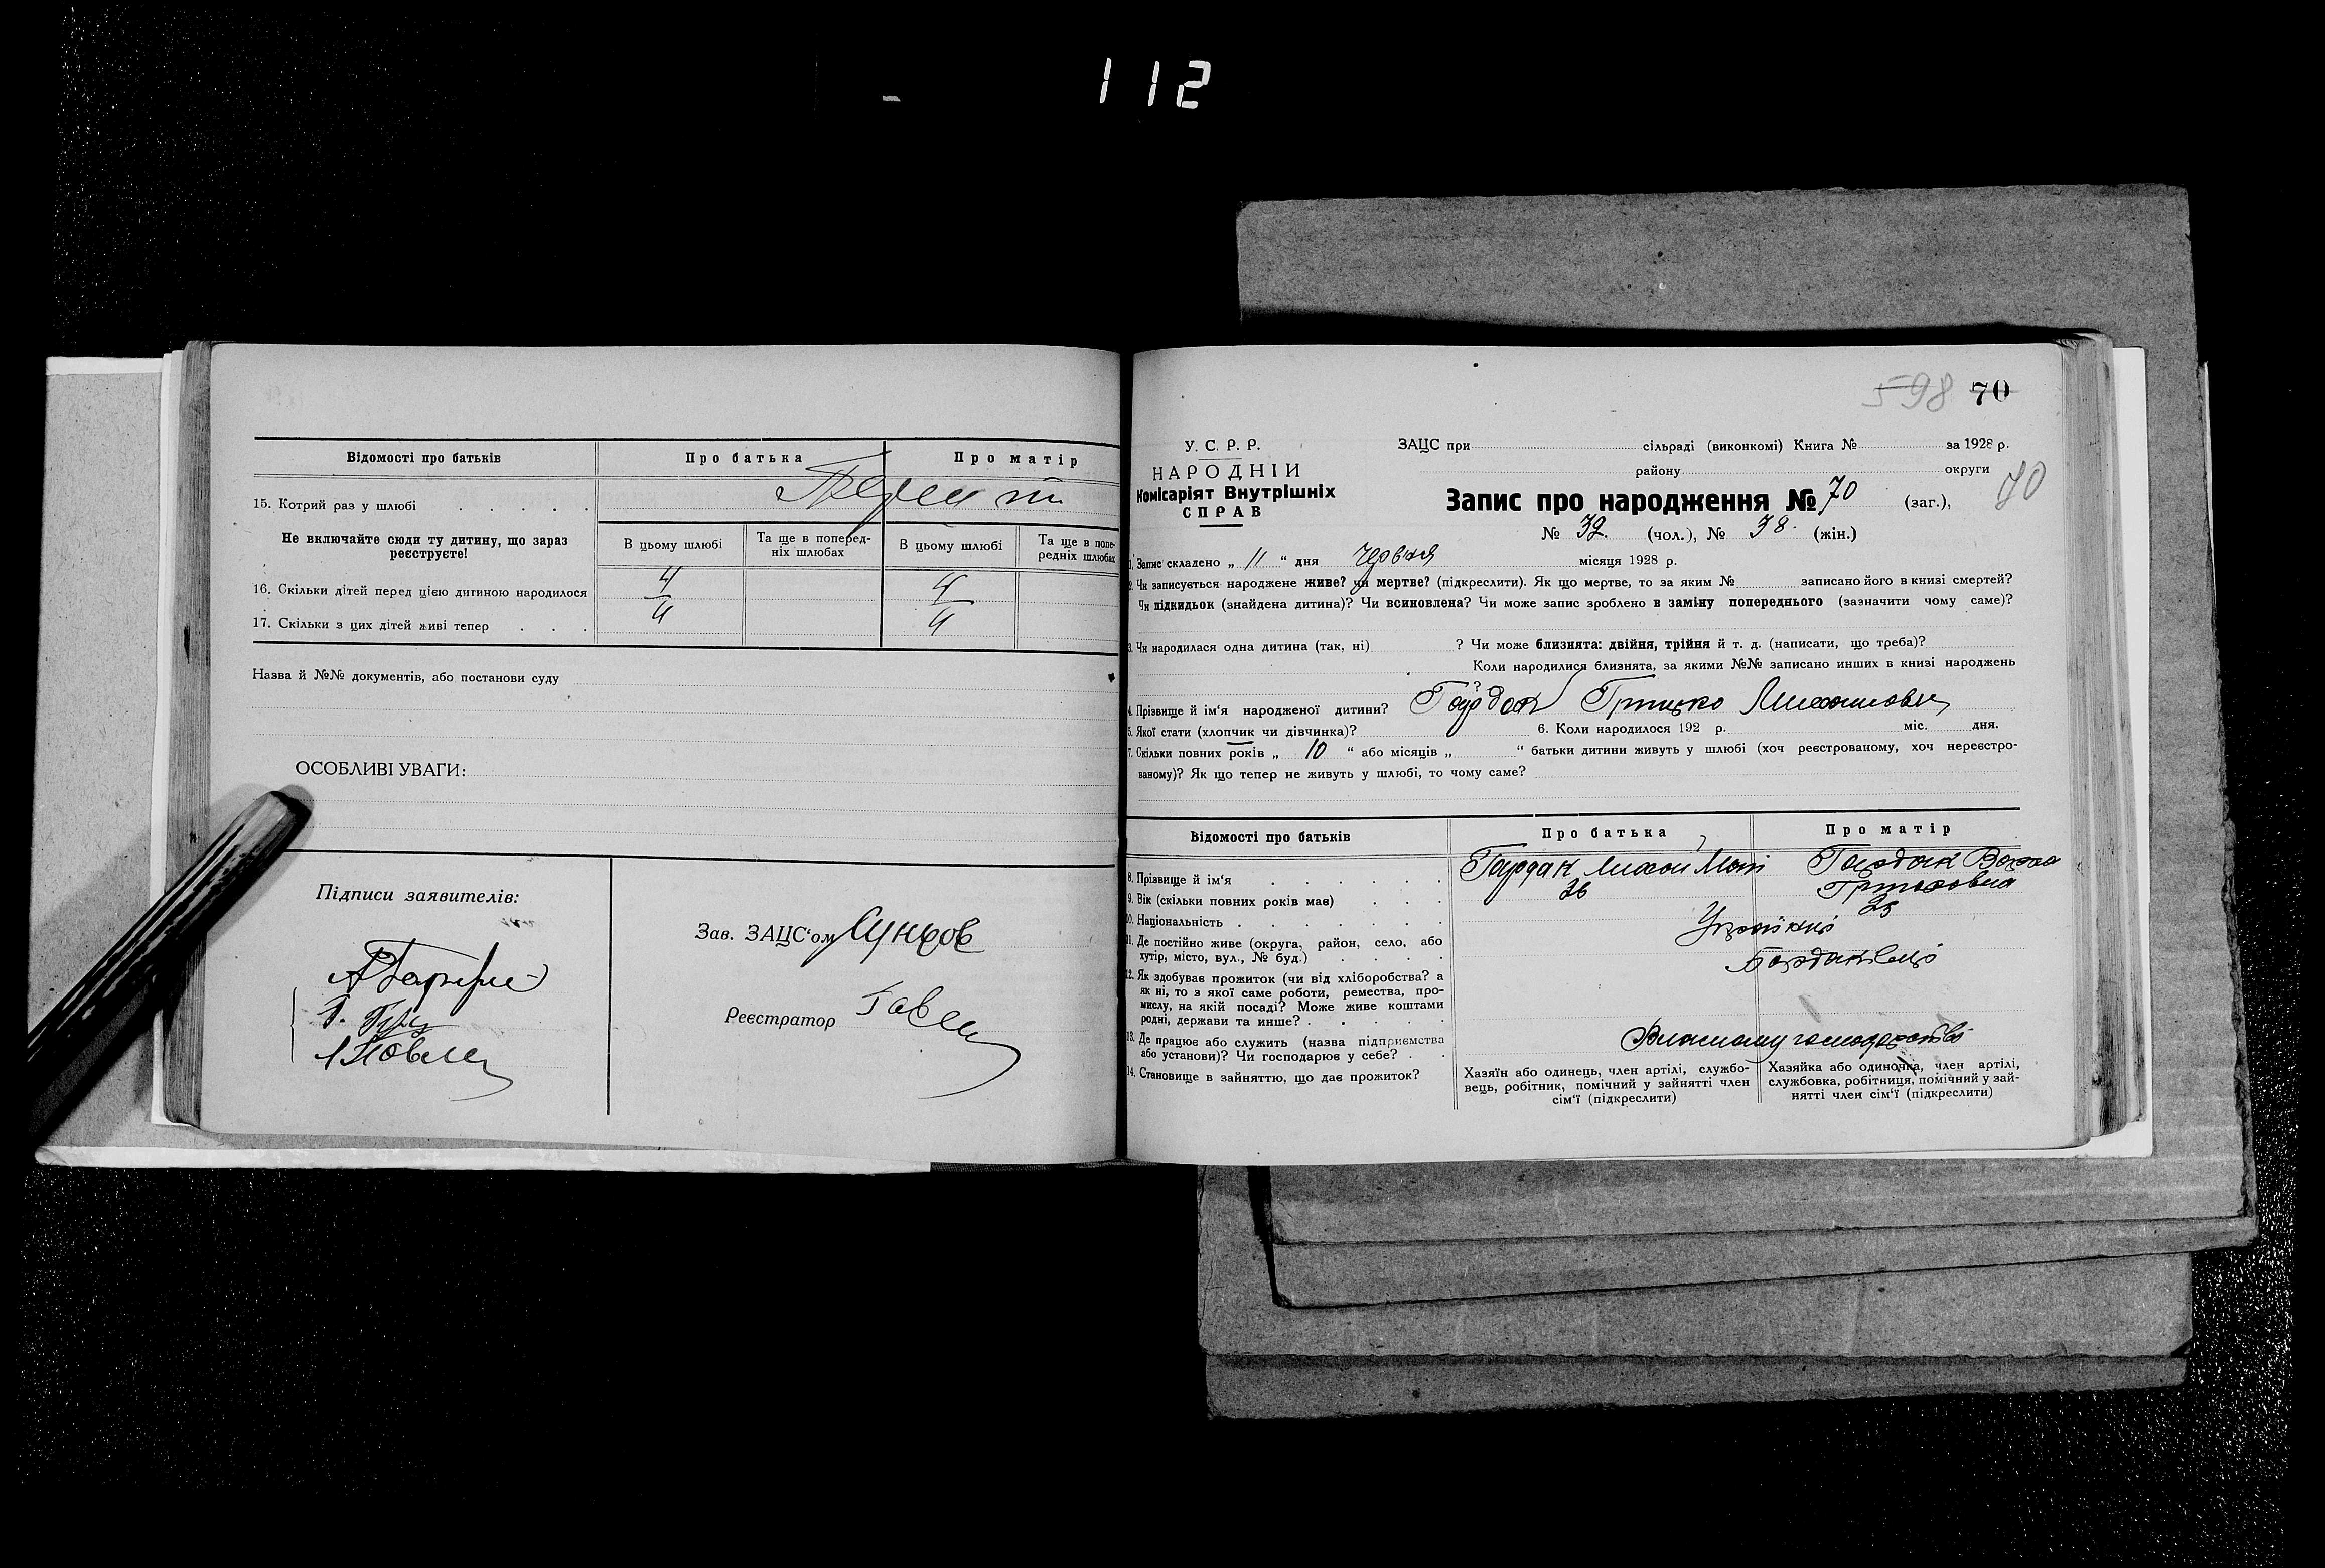 112
Відомості про батьків
Про батька
Про матір
15. Котрий раз у шлюбі
Не включайте сюди ту дитину, що зараз
реєструєте!
В цьому шлюбі
Та ще в поперед-
ніх шлюбах
В цьому шлюбі
Та ще в попе-
редніх шлюбах
16. Скільки дітей перед цією дитиною народилося
4
4
17. Скільки з цих дітей живі тепер
4
4
Назва й №№ документів, або постанови суду
ОСОБЛИВІ УВАГИ:
Підписи заявителів:
Зав. ЗАЦС'ом
Реєстратор
598 70
У. С. Р. Р.
НАРОДНІЙ
Комісаріят Внутрішніх
СПРАВ
ЗАЦС при сільраді (виконкомі) Книга № за 1928 р.
району округи
Запис про народження № 70 (заг.), 70
№ 32. (чол.), № 38. (жін.)
1. Запис складено „ 11 “ дня Червня місяця 1928 р.
2. Чи записується народжене живе? чи мертве? (підкреслити). Як що мертве, то за яким № записано його в книзі смертей?
Чи підкидьок (знайдена дитина)? Чи всиновлена? Чи може запис зроблено в заміну попереднього (зазначити чому саме)?
3. Чи народилася одна дитина (так, ні) ? Чи може близнята: двійня, трійня й т. д. (написати, що треба)?
Коли народилися близнята, за якими №№ записано инших в книзі народжень
?
4. Прізвище й ім'я народженої дитини? Грицько
5. Якої стати (хлопчик чи дівчинка)? 6. Коли народилося 192 р. міс. дня.
7. Скільки повних років „ 10 “ або місяців „ “ батьки дитини живуть у шлюбі (хоч реєстрованому, хоч нереєстро-
ваному)? Як що тепер не живуть у шлюбі, то чому саме?
Відомості про батьків
Про батька
Про матір
8. Прізвище й ім'я
9. Вік (скільки повних років має)
10. Національність
11. Де постійно живе (округа, район, село, або
хутір, місто, вул., № буд.)
12. Як здобуває прожиток (чи від хліборобства? а
як ні, то з якої саме роботи, ремества, про-
мислу, на якій посаді? Може живе коштами
родні, держави та инше?
13. Де працює або служить (назва підприємства
або установи)? Чи господарює у себе?
14. Становище в зайняттю, що дає прожиток?
Хазяїн або одинець, член артілі, службо-
вець, робітник, помічний у зайнятті член
сім'ї (підкреслити)
Хазяйка або одиночка, член артілі,
службовка, робітниця, помічний у зай-
нятті член сім'ї (підкреслити)